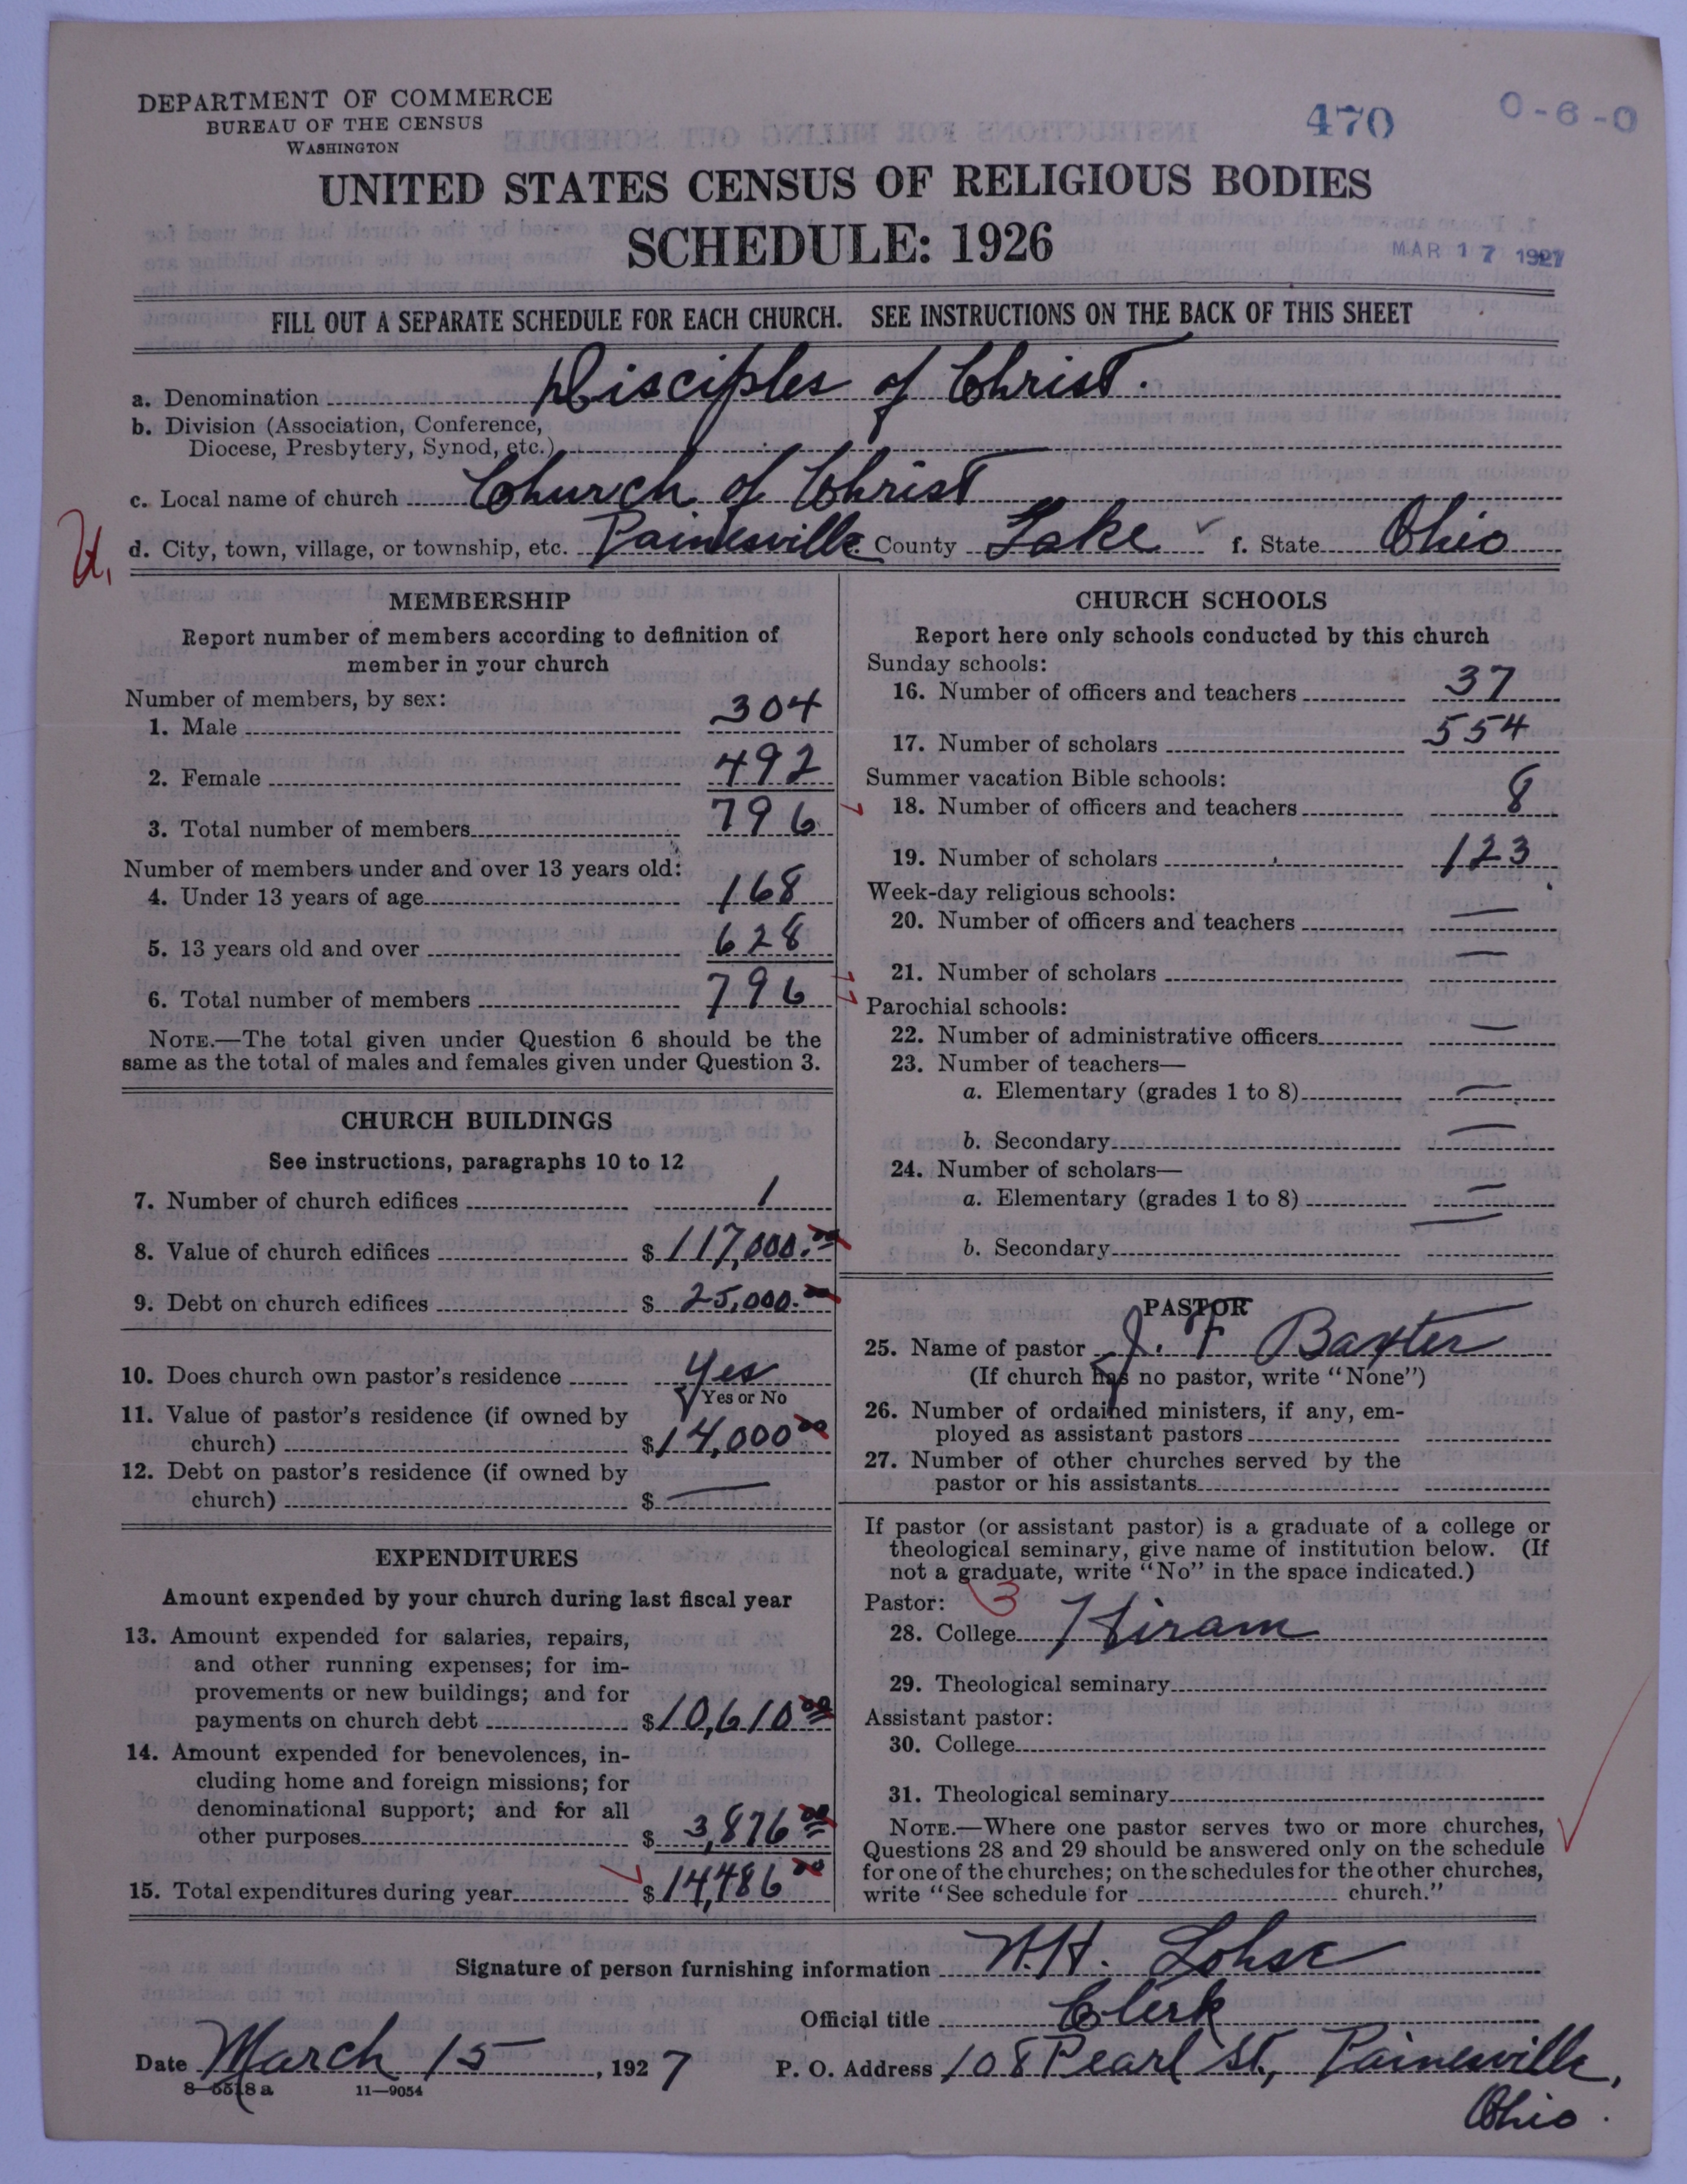 DEPARTMENT OF COMMERCE
BUREAU OF THE CENSUS
WASHINGTON
470
0-6-0
UNITED STATES CENSUS OF RELIGIOUS BODIES
SCHEDULE: 1926
MAR 17 1927
FILL OUT A SEPARATE SCHEDULE FOR EACH CHURCH. SEE INSTRUCTIONS ON THE BACK OF THIS SHEET
a. Denomination Disciples of Christ.
b. Division (Association, Conference,
Diocese, Presbytery, Synod, etc.)
c. Local name of church Church of Christ
d. City, town, village, or township, etc. Painesville County Lake f. State Ohio
MEMBERSHIP
Report number of members according to definition of
member in your church
Number of members, by sex:
1. Male 304
2. Female 492
3. Total number of members 796
Number of members under and over 13 years old:
4. Under 13 years of age 168
5. 13 years old and over 628
6. Total number of members 796
NOTE.—The total given under Question 6 should be the
same as the total of males and females given under Question 3.
CHURCH BUILDINGS
See instructions, paragraphs 10 to 12
7. Number of church edifices 1
8. Value of church edifices $ 117,000.00
9. Debt on church edifices $ 25,000.00
10. Does church own pastor's residence Yes
Yes or No
11. Value of pastor's residence (if owned by
church) $ 14,000 00
12. Debt on pastor's residence (if owned by
church) $ —
EXPENDITURES
Amount expended by your church during last fiscal year
13. Amount expended for salaries, repairs,
and other running expenses; for im-
provements or new buildings; and for
payments on church debt $ 10,610 00
14. Amount expended for benevolences, in-
cluding home and foreign missions; for
denominational support; and for all
other purposes $ 3,876 00
15. Total expenditures during year $ 14,486 00
CHURCH SCHOOLS
Report here only schools conducted by this church
Sunday schools:
16. Number of officers and teachers 37
17. Number of scholars 554
Summer vacation Bible schools:
18. Number of officers and teachers 8
19. Number of scholars 123
Week-day religious schools:
20. Number of officers and teachers —
21. Number of scholars —
Parochial schools:
22. Number of administrative officers —
23. Number of teachers—
a. Elementary (grades 1 to 8) —
b. Secondary —
24. Number of scholars—
a. Elementary (grades 1 to 8) —
b. Secondary —
PASTOR
25. Name of pastor J. F Baxter
(If church has no pastor, write "None")
26. Number of ordained ministers, if any, em-
ployed as assistant pastors
27. Number of other churches served by the
pastor or his assistants
If pastor (or assistant pastor) is a graduate of a college or
theological seminary, give name of institution below. (If
not a graduate, write "No" in the space indicated.)
Pastor: 3
28. College Hiram
29. Theological seminary
Assistant pastor:
30. College
31. Theological seminary
NOTE.—Where one pastor serves two or more churches,
Questions 28 and 29 should be answered only on the schedule
for one of the churches; on the schedules for the other churches,
write "See schedule for church."
Signature of person furnishing information Lohse
Official title Clerk
Date March 15, 1927 P. O. Address 108 Pearl St., Painesville,
Ohio.
8—5518 a 11—9054